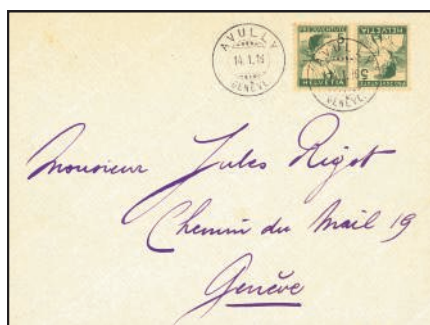 AVULLY
14.1.16
GENÈVE
PRO JUVENTUTE
5
HELVETIA
HELVETIA
PRO JUVENTUTE
Monsieur Jules Rigot
Chemin du Mail 19
Genève